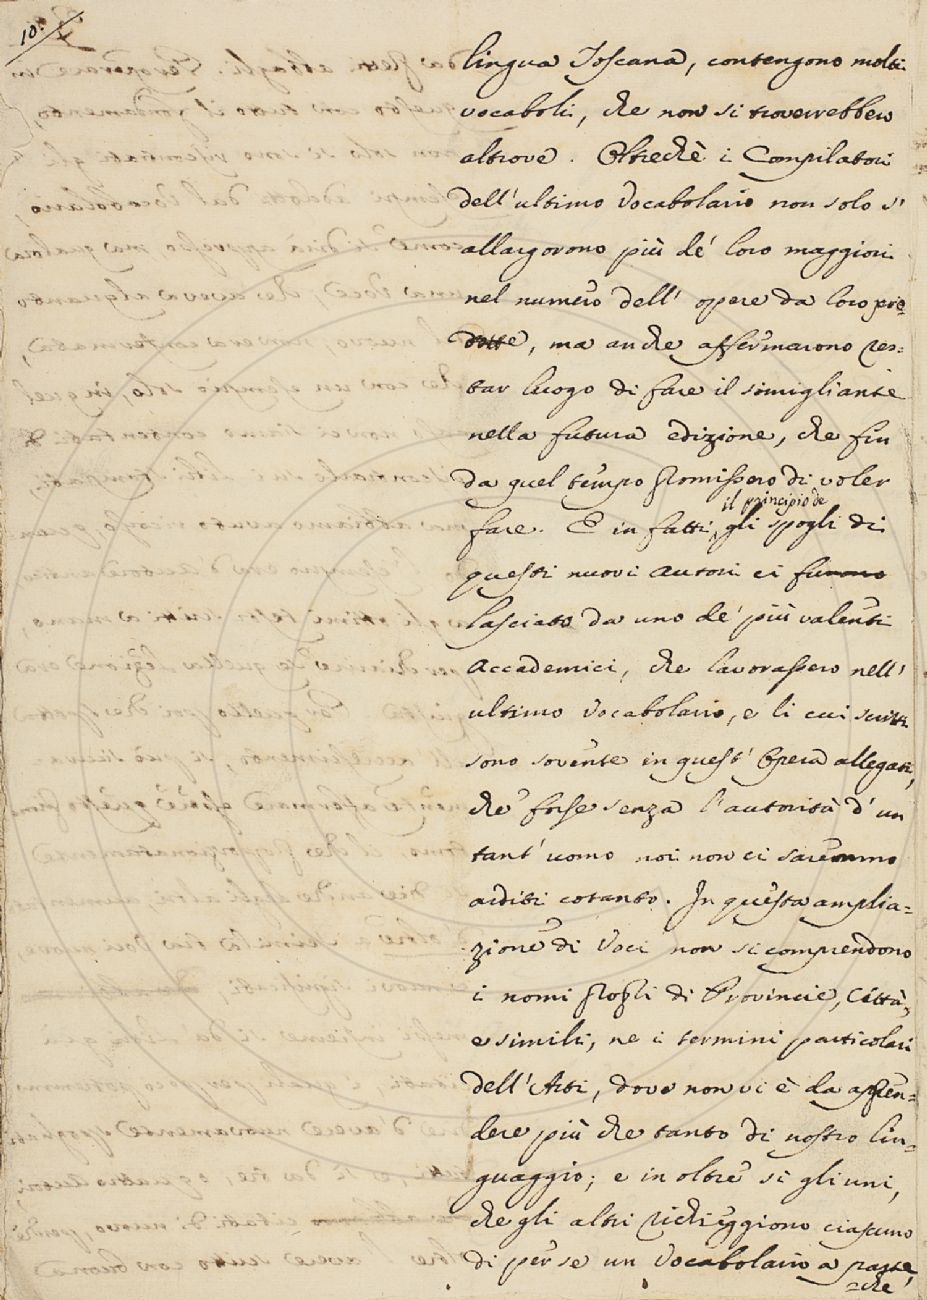 10.
lingua Toscana, contengono molti
vocaboli, che non si troverrebbero
altrove. Oltrechè i Compilatori
dell'ultimo Vocabolario non solo s'
allargorono più de' loro maggiori
nel numero dell' opere da loro pre-
dotte, ma anche affermarono res-
tar luogo di fare il simigliante
nella futura edizione, che fin
da quel tempo promissero di voler
fare. E in fatti, il principio de gli spogli di
questi nuovi autori ci furono
lasciato da uno de' più valenti
Accademici, che lavorassero nell'
ultimo Vocabolario, e li cui scritti
sono sovente in quest' Opera allegati,
che forse senza l'autorità d'un
tant' uomo noi non ci saremmo
arditi cotanto. In questa amplia-
zione di Voci non si comprendono
i nomi proprj di Provincie, Città,
e simili, ne i termini particolari
dell'Arti, dove non vi è da appren-
dere più che tanto di nostro lin-
guaggio; e in oltre si gli uni,
che gli altri richieggiono ciascuno
di per se un Vocabolario a parte,
-che'